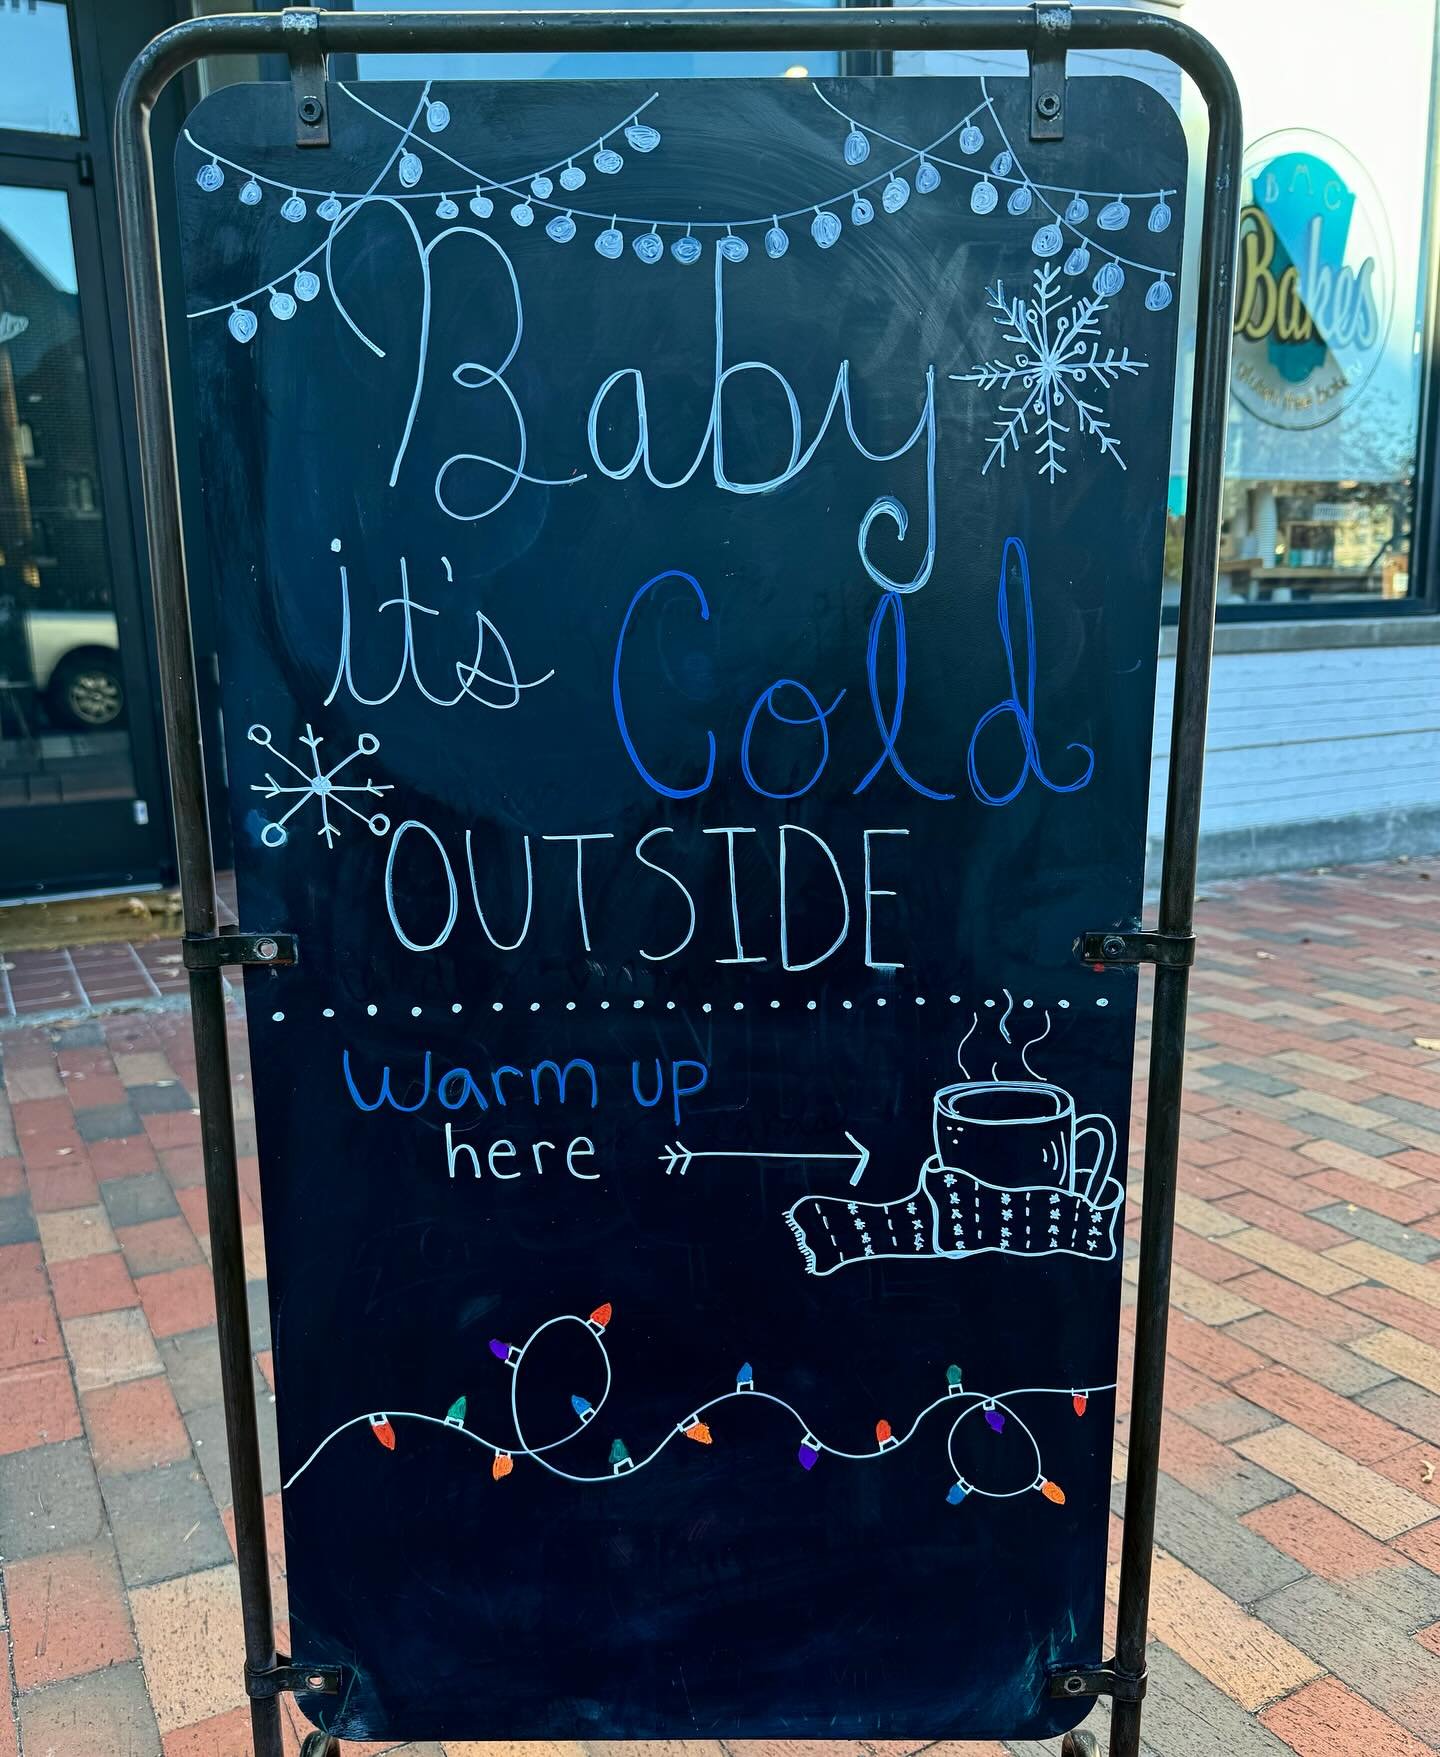 Baby
it's Cold
OUTSIDE
Warm up
here
BMC
Bakes
gluten free bakery